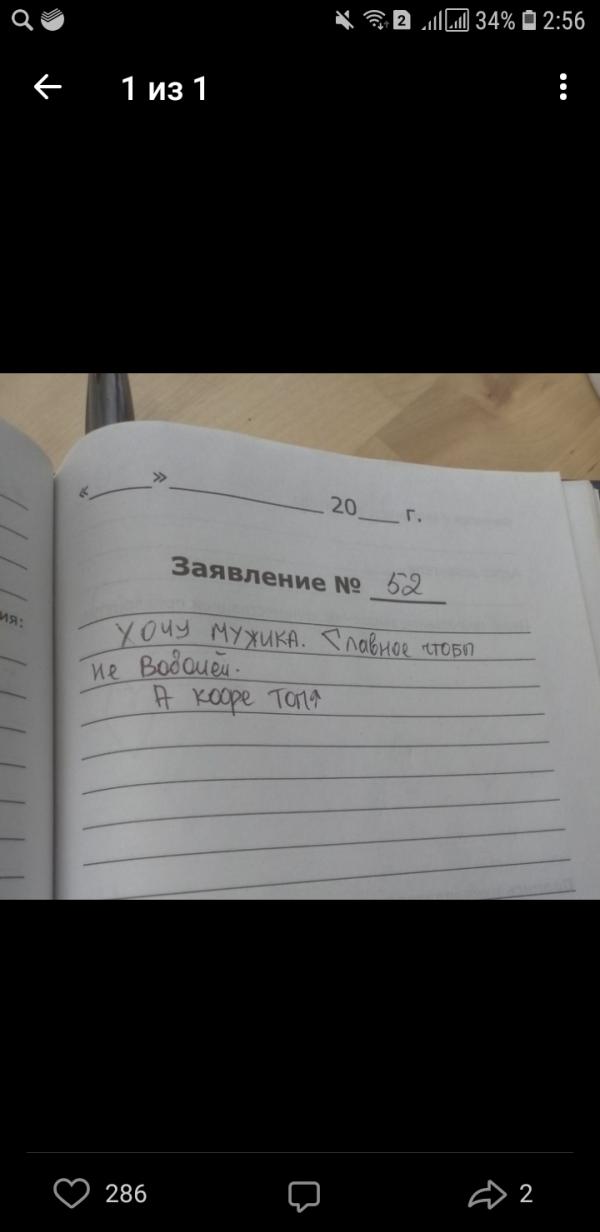 2 34% 2:56
1 из 1
«____»____________ 20___ г.
Заявление № 52
ия:
Хочу мужика. Главное чтобы
не Водолей.
А кофе топ↑
286 2